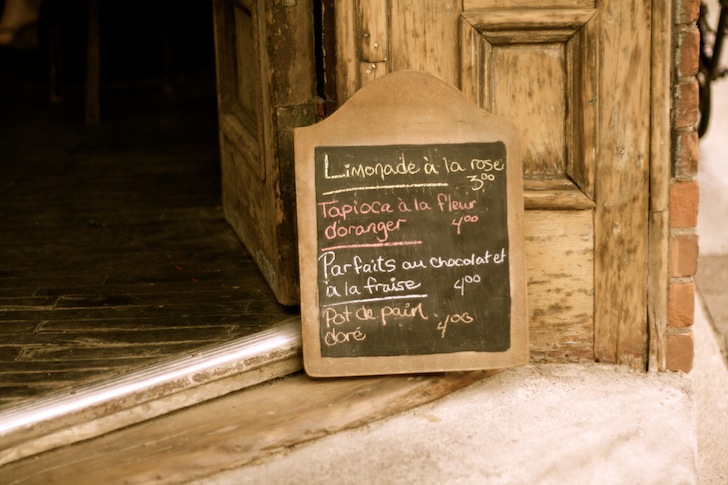 Limonade à la rose
3.00
Tapioca à la fleur
d'oranger 4.00
Parfaits au chocolat et
à la fraise 4.00
Pot de pain
doré 4.00